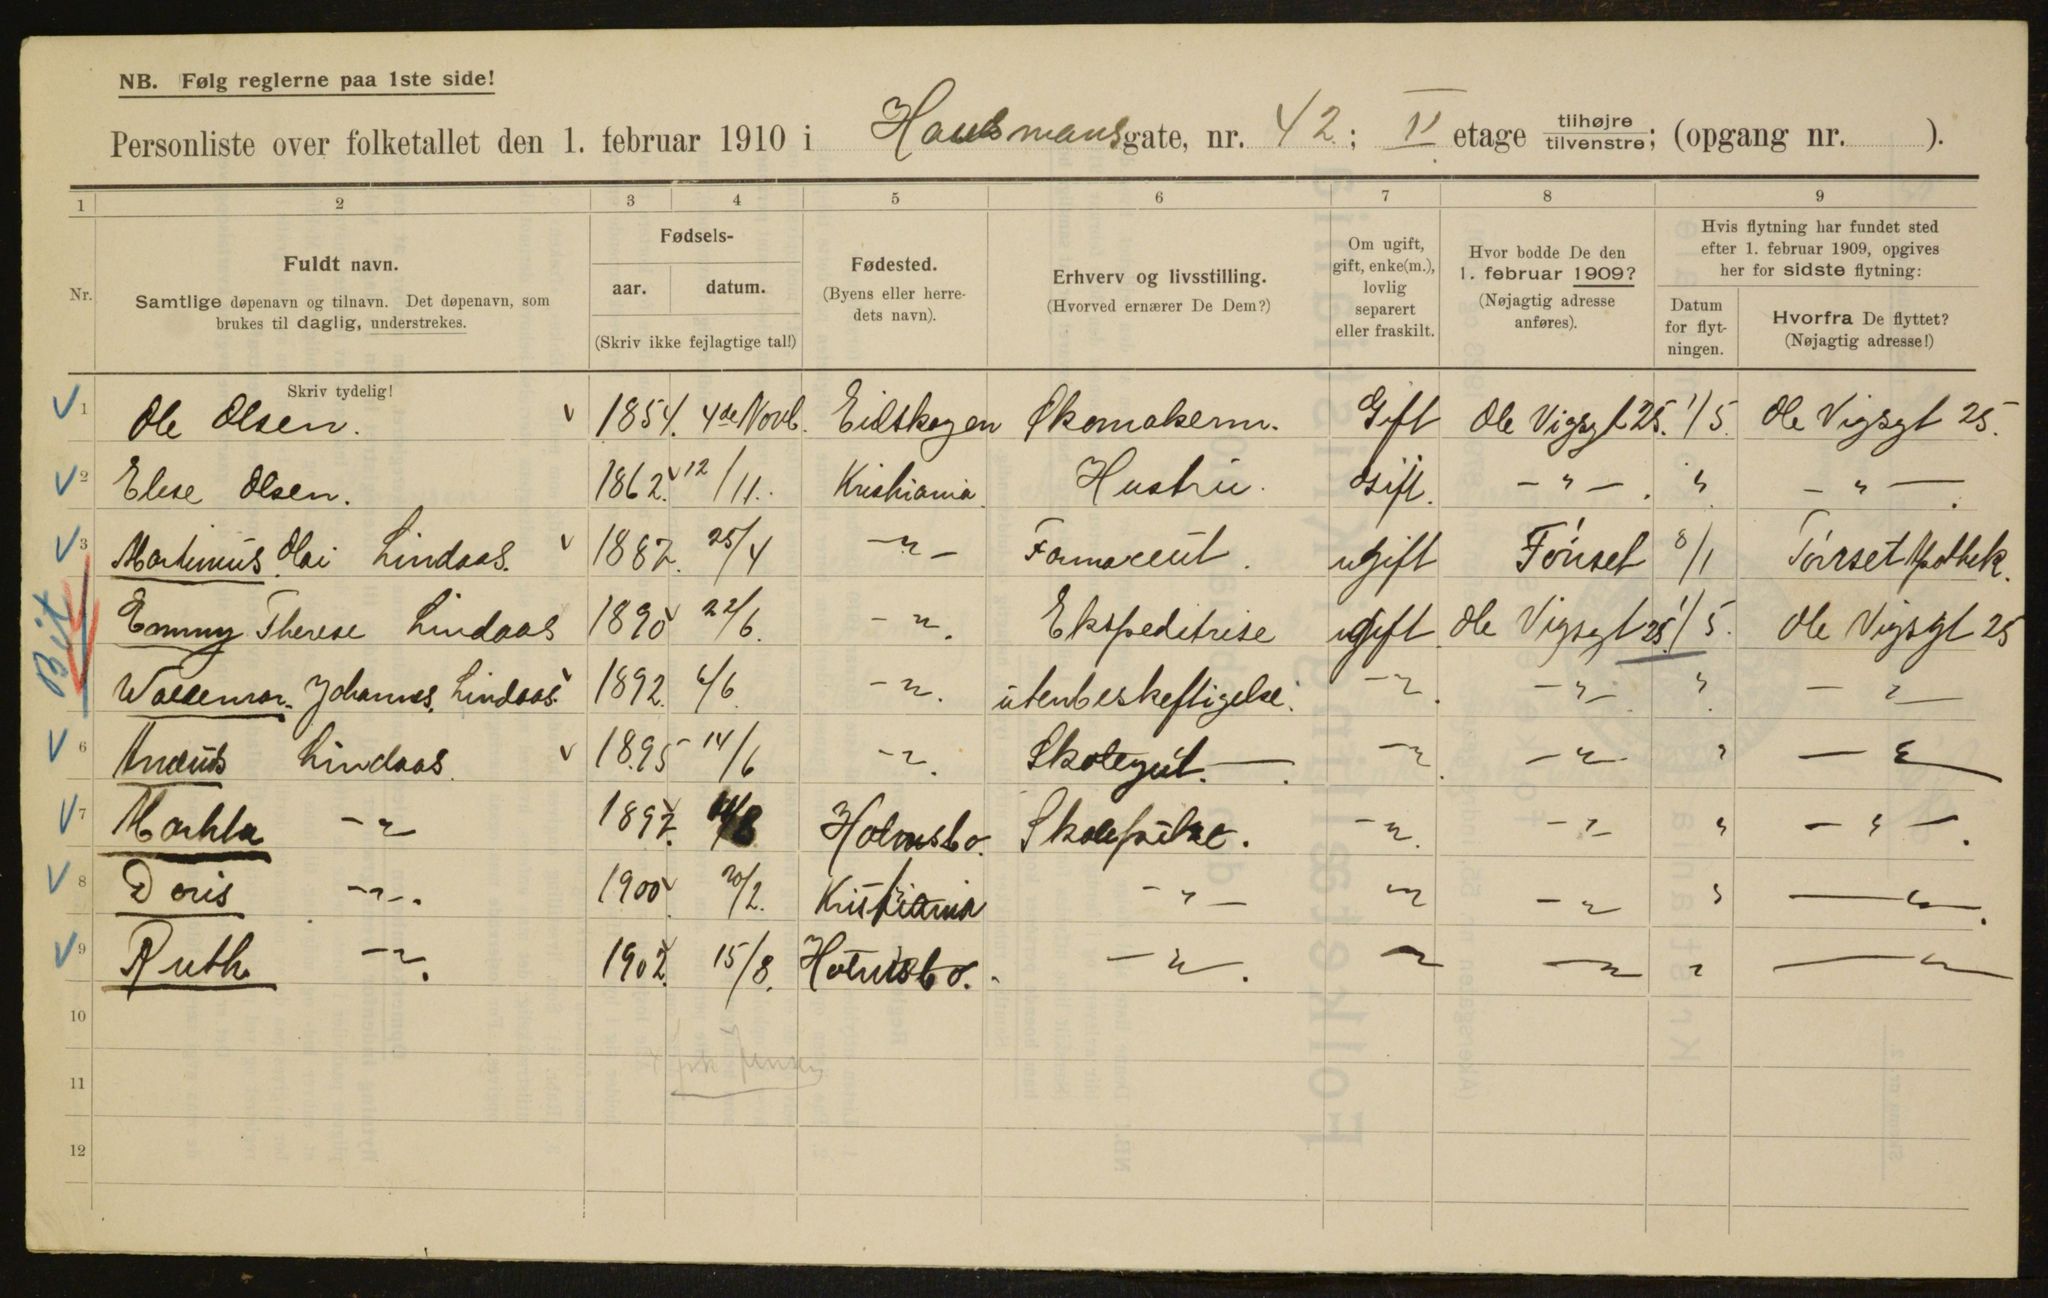 NB. Følg reglerne paa 1ste side!
Personliste over folketallet den 1. februar 1910 i Hausmansgate, nr. 42; II etage tilhøjre/tilvenstre; (opgang nr. ).
1 2 3 4 5 6 7 8 9
Nr.
Fuldt navn.
Samtlige døpenavn og tilnavn. Det døpenavn, som
brukes til daglig, understrekes.
Skriv tydelig!
Fødsels-
aar. datum.
(Skriv ikke fejlagtige tal!)
Fødested.
(Byens eller herre-
dets navn).
Erhverv og livsstilling.
(Hvorved ernærer De Dem?)
Om ugift,
gift, enke(m.),
lovlig
separert
eller fraskilt.
Hvor bodde De den
1. februar 1909?
(Nøjagtig adresse
anføres).
Hvis flytning har fundet sted
efter 1. februar 1909, opgives
her for sidste flytning:
Datum
for flyt-
ningen.
Hvorfra De flyttet?
(Nøjagtig adresse!)
1 Ole Olsen. 1854. 4de Novb. Eidskogen Skomakerm. Gift Ole Vigsgt 25. 1/5. Ole Vigsgt 25.
2 Elise Olsen. 1862. 12/11. Kristiania Hustru. Gift. -"-. " -"-.
3 Martinius Olai Lindaas. 1887. 25/4 -"- Farmaceut. ugift Tönset 8/1 Tönset Apothek.
Emmy Therese Lindaas 1890 22/6. -". Ekspeditrise ugift Ole Vigsgt 25. 1/5. Ole Vigsgt 25
Waldemar. Johannes. Lindaas. 1892. 4/6. -". utenbeskeftigelse. -". -". " -"-
6 Lindaas. 1895 14/6 -". Skolegut. -". -" " -"
7 Martha -" 1897. Holmsbo. Skolepike. -". -"- " -"-.
8 Doris -"-. 1900 20/2. Kristiania -"- -" -" " -"-.
9 Ruth -". 1902. 15/8. Holmsbo. -"-. -" -"- " -"-
10
11
12